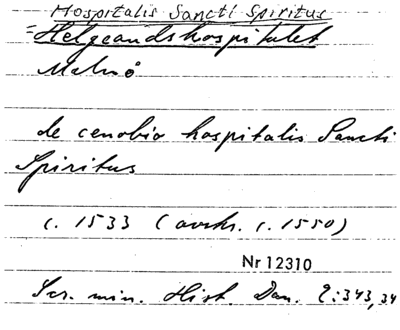 Hospitalis Sancti Spiritus
= Helgeandshospitalet
Malmö
de cenobio hospitalis Sancti
Spiritus
c. 1533 (avskr. c. 1550)
Nr 12310
Scr. min. Hist. Dan. 2:343, 34